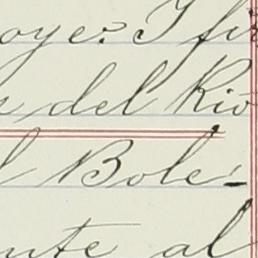 oye. I fir
del Rio
l Bole-
nte al